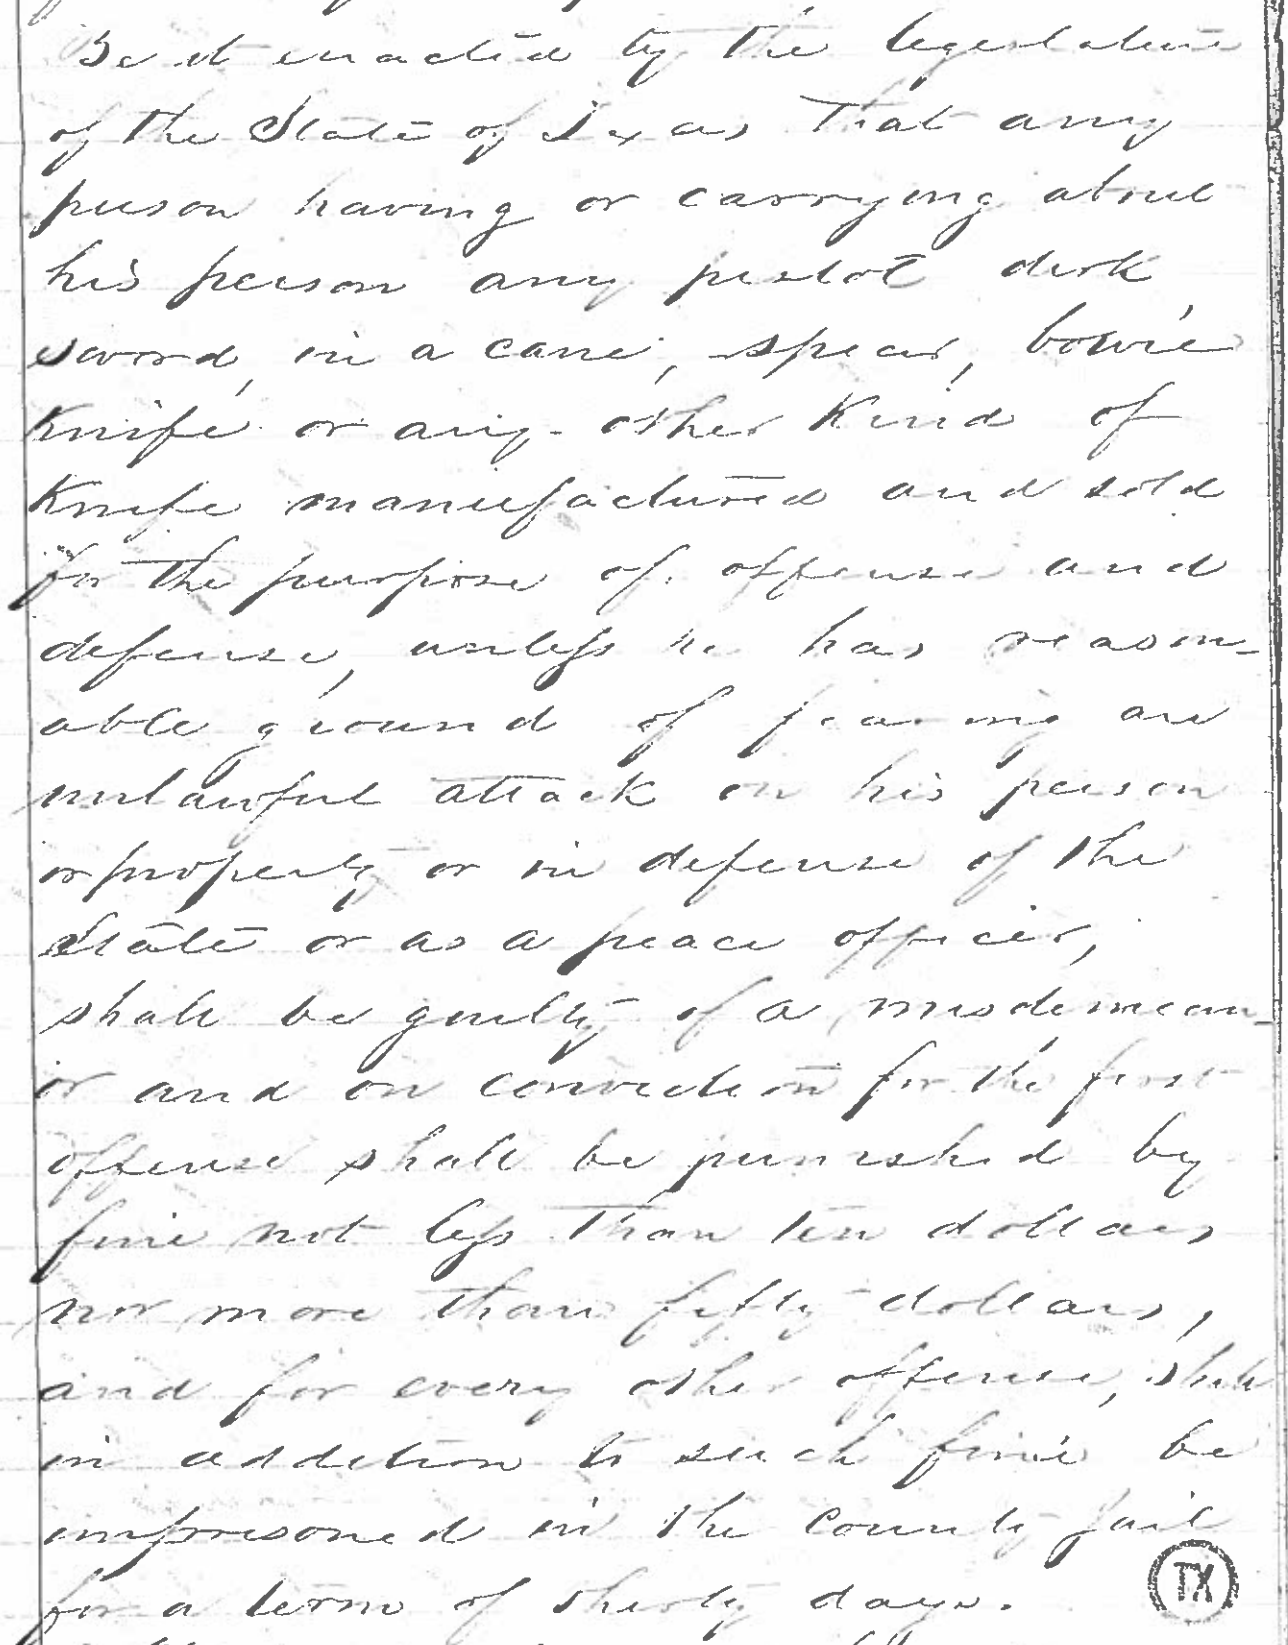 Be it enacted by the legislature
of the State of Texas That any
person having or carrying about
his person any pistol dirk,
sword, in a cane, spear, bowie
Knife or any other Kind of
Knife manufactured and sold
for the purpose of offense and
defense, unless he has reason-
able ground of fearing an
unlawful attack on his person
or property or in defense of the
State or as a peace officer,
shall be guilty of a misdemean-
or and on conviction for the first
offense shall be punished by
fine not less than ten dollars
nor more than fifty dollars,
and for every other offense, shall
in addition to such fine be
imprisoned in the County jail
for a term of thirty days.
TX